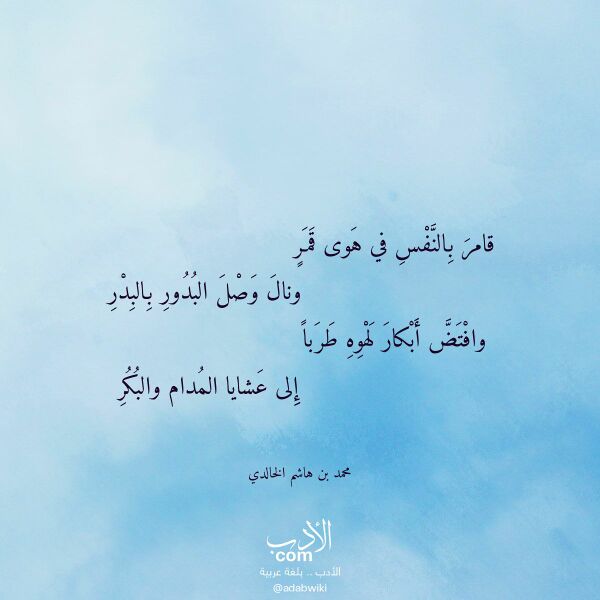 قامرَ بِالنَّفْسِ في هَوى قَمَرٍ
ونالَ وَصْلَ البُدُورِ بِالبِدْرِ
وافْتَضَّ أَبْكارَ لَهْوِهِ طَرَباً
إِلى عَشايا المُدام والبُكُرِ
محمد بن هاشم الخالدي
الأدب
com
الأدب .. بلغة عربية
@adabwiki